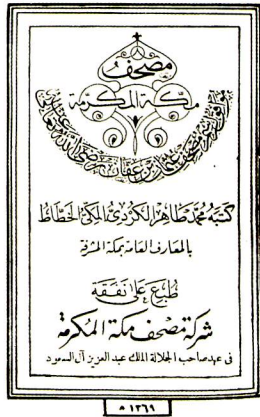 مصحف
مكة المكرمة
عثمان بن عفان رضي الله
كتبه محمد طاهر الكردي المكي الخطاط
بالمعارف العامة بمكة المشرفة
طبع على نفقة
شركة مصحف مكة المكرمة
فى عهد صاحب الجلالة الملك عبد العزيز آل السعود
١٣٦٩ ه